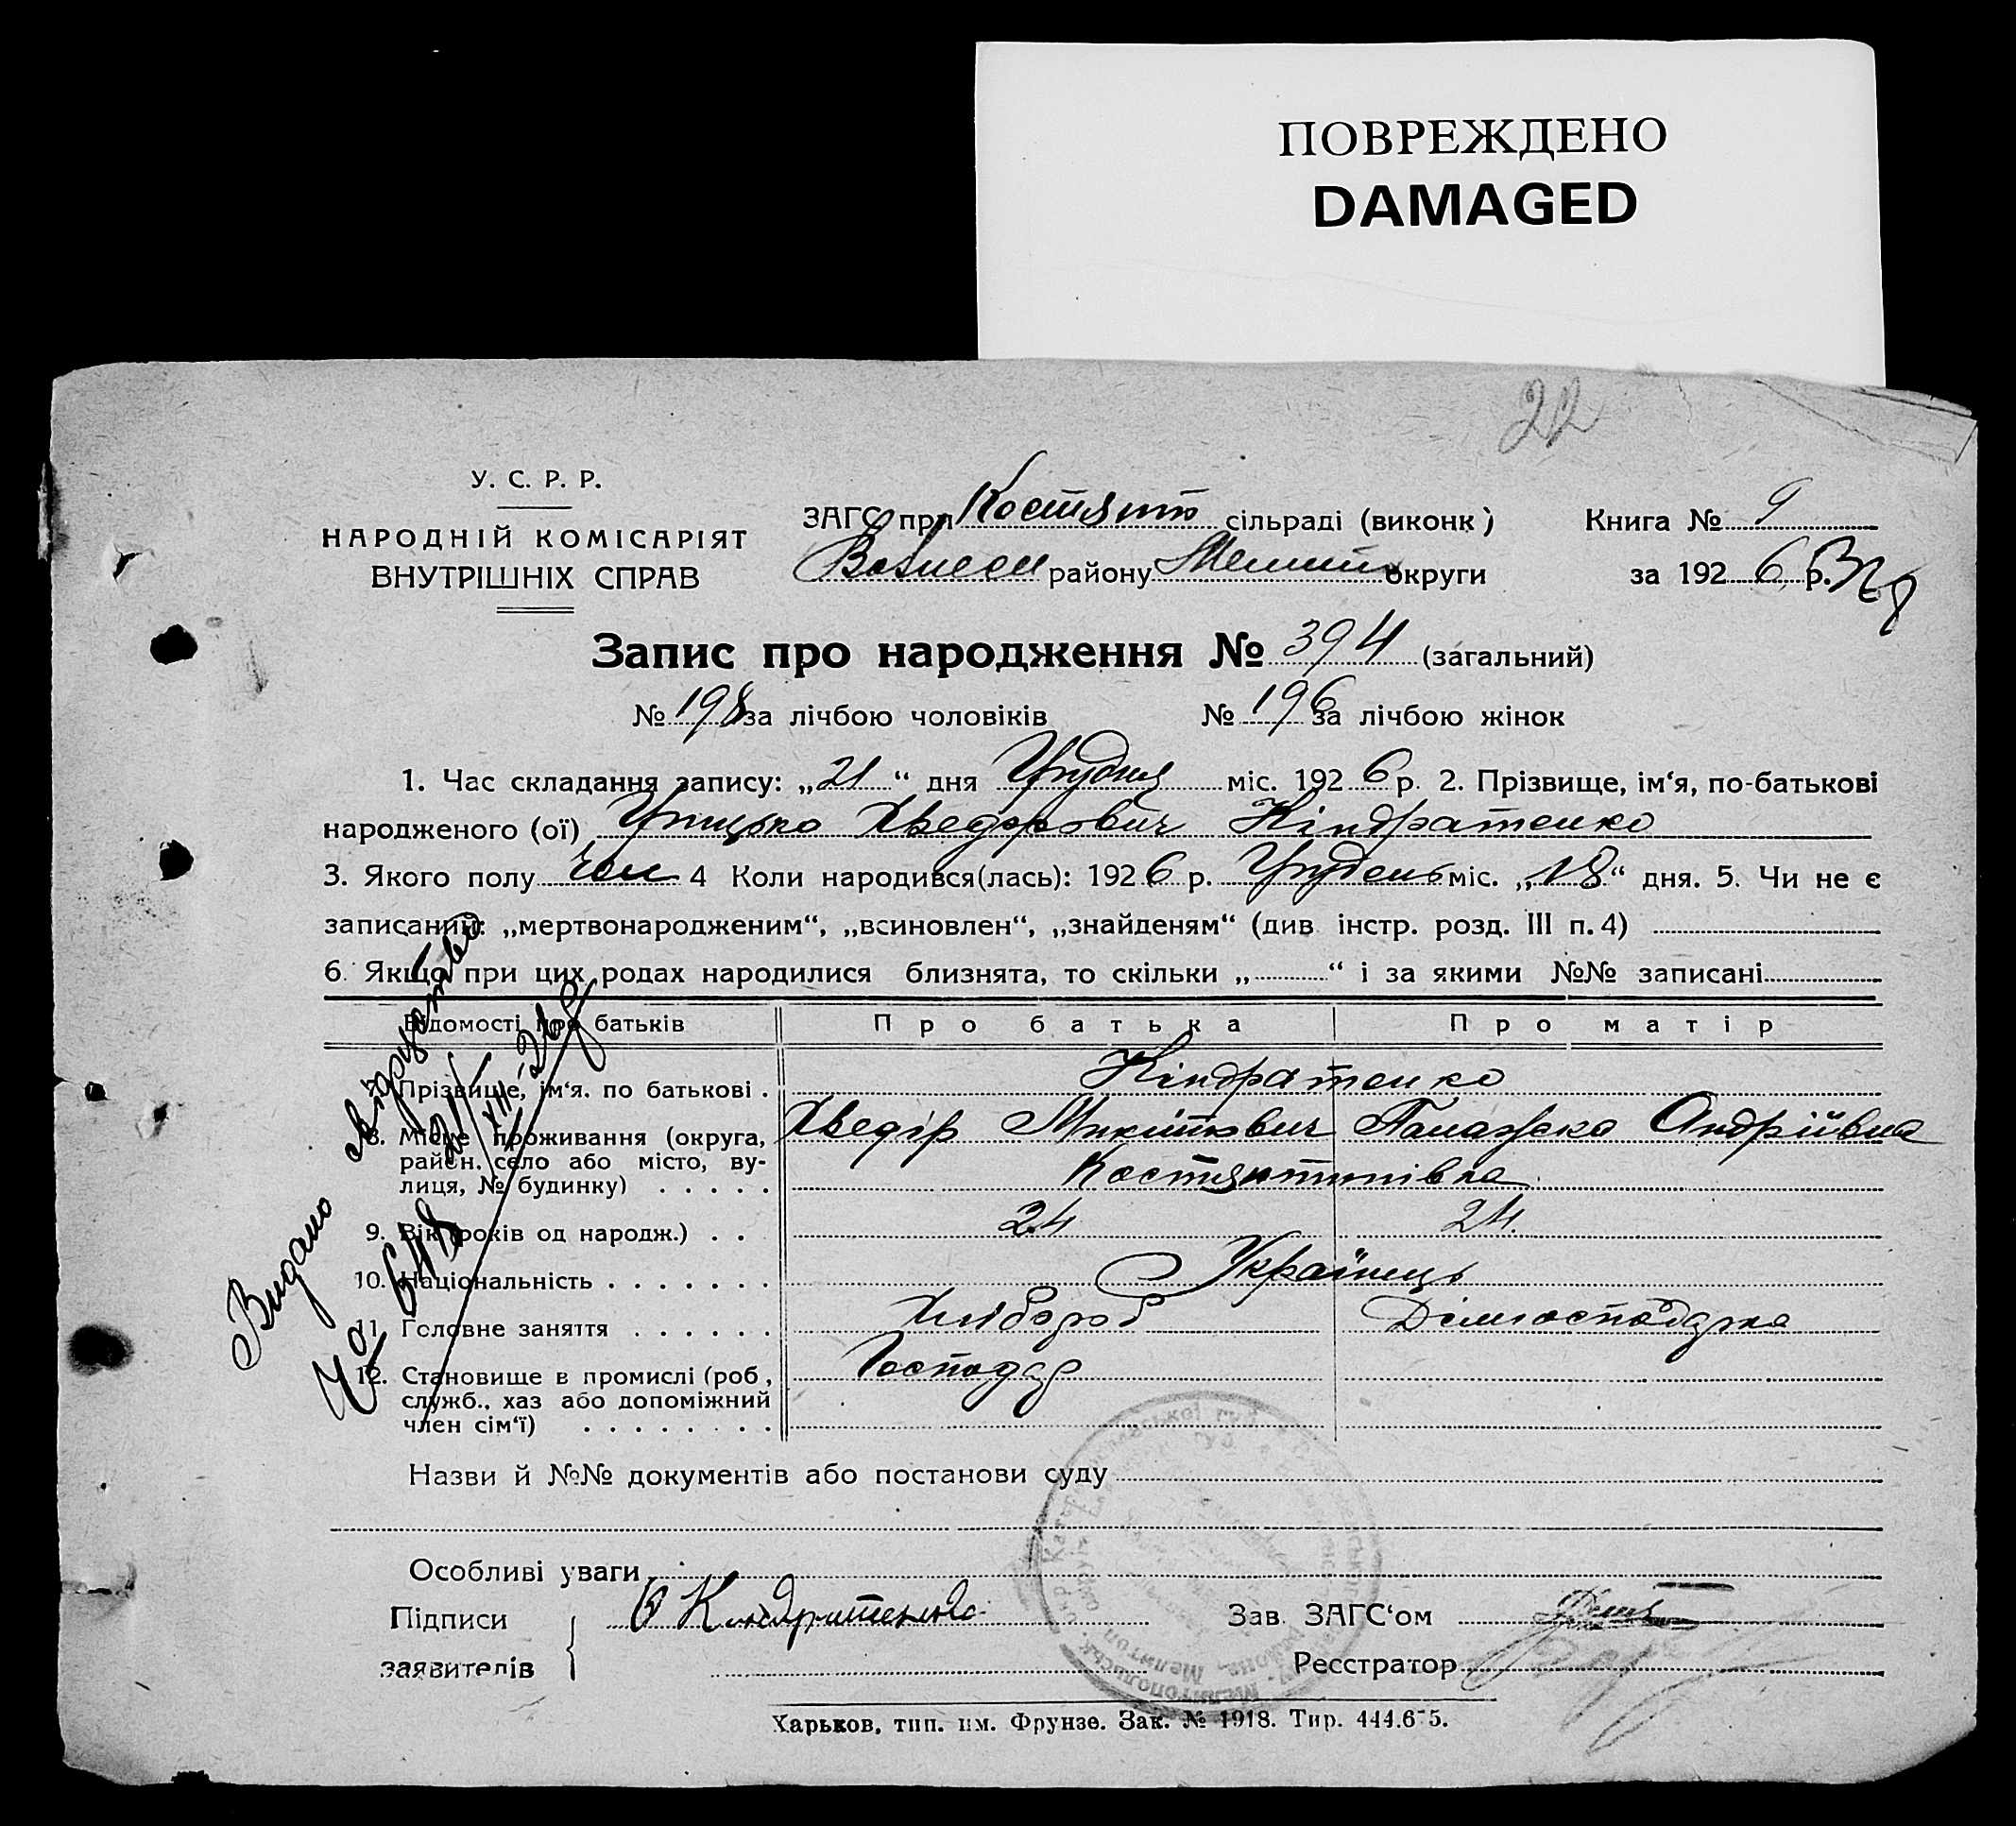 ПОВРЕЖДЕНО
DAMAGED
22
У. С. Р. Р.
НАРОДНІЙ КОМІСАРІЯТ
ВНУТРІШНІХ СПРАВ
ЗАГС при Костянт сільраді (виконк)
Книга № 9
Вознесен району Мелит округи
за 1926 р.
Запис про народження № 394 (загальний)
№ 198 за лічбою чоловіків № 196 за лічбою жінок
1. Час складання запису: „21“ дня Грудня міс. 1926 р. 2. Прізвище, ім‘я, по-батькові
народженого (ої) Грицько Хведорович Кіндратенко
3. Якого полу Чол 4 Коли народився(лась): 1926 р. Грудень міс. „18“ дня. 5. Чи не є
записаний: „мертвонародженим“, „всиновлен“, „знайденям“ (див інстр. розд. III п. 4)
6. Якщо при цих родах народилися близнята, то скільки „ “ і за якими №№ записані
Відомості про батьків Про батька Про матір
7. Прізвище, ім‘я. по батькові . Кіндратенко
Хведір Микитович Палажка Андріївна
8. Місце проживання (округа,
район. село або місто, ву-
лиця, № будинку) . . . . . Костянтинівка
9. Вік (років од народж.) . . 24 24.
10. Національність . . . . . . . Українець
11. Головне заняття . . . . . . Хлібороб Домгосподарка
12. Становище в промислі (роб, Господар
служб., хаз або допоміжний
член сім‘ї) . . . . . . . .
Видано
№ 648
21/XII-26 р
Назви й №№ документів або постанови суду
Особливі уваги
Підписи
заявителів
Кондратенко
Зав. ЗАГС‘ом
Реєстратор
Харьков, тип. им. Фрунзе. Зак. № 1918. Тир. 444.675.